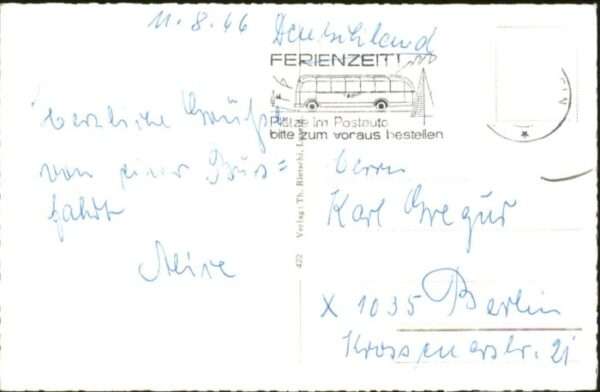 11.8.66 Deutschland
FERIENZEIT!
Plätze im Postauto
bitte zum voraus bestellen
herzliche Grüße
von einer Bus=
fahrt
Verlag: Th. Rietschi,
422
Herrn
Karl Gregur
X 1035 Berlin
Krossenerstr. 21